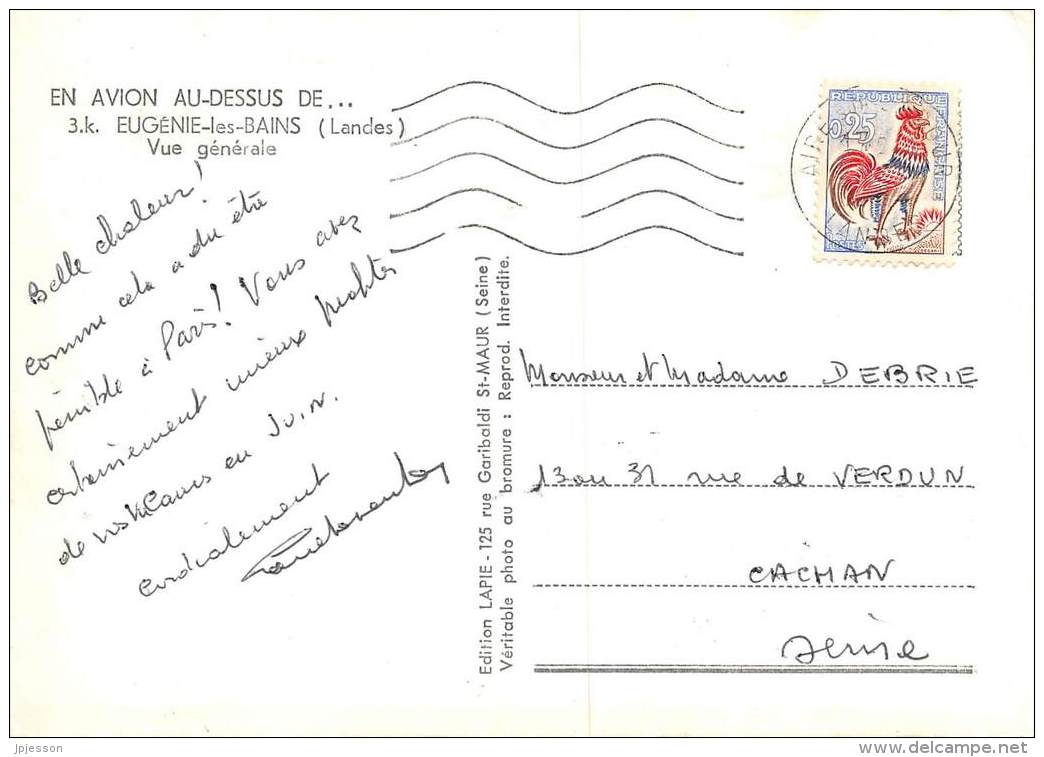 EN AVION AU-DESSUS DE...
3.k. EUGÉNIE-les-BAINS (Landes)
Vue générale
Belle chaleur!
comme cela a du être
pénible à Paris! Vous avez
certainement mieux profiter
de vos vacances en Juin.
cordialement
Edition LAPIE - 125 rue Garibaldi St-MAUR (Seine)
Véritable photo au bromure : Reprod. Interdite.
REPUBLIQUE
FRANÇAISE
0,25
POSTES
AIRE
LANDES
Monsieur et Madame DEBRIE
13 ou 31 rue de VERDUN
CACHAN
Seine
jpjesson
www.delcampe.net